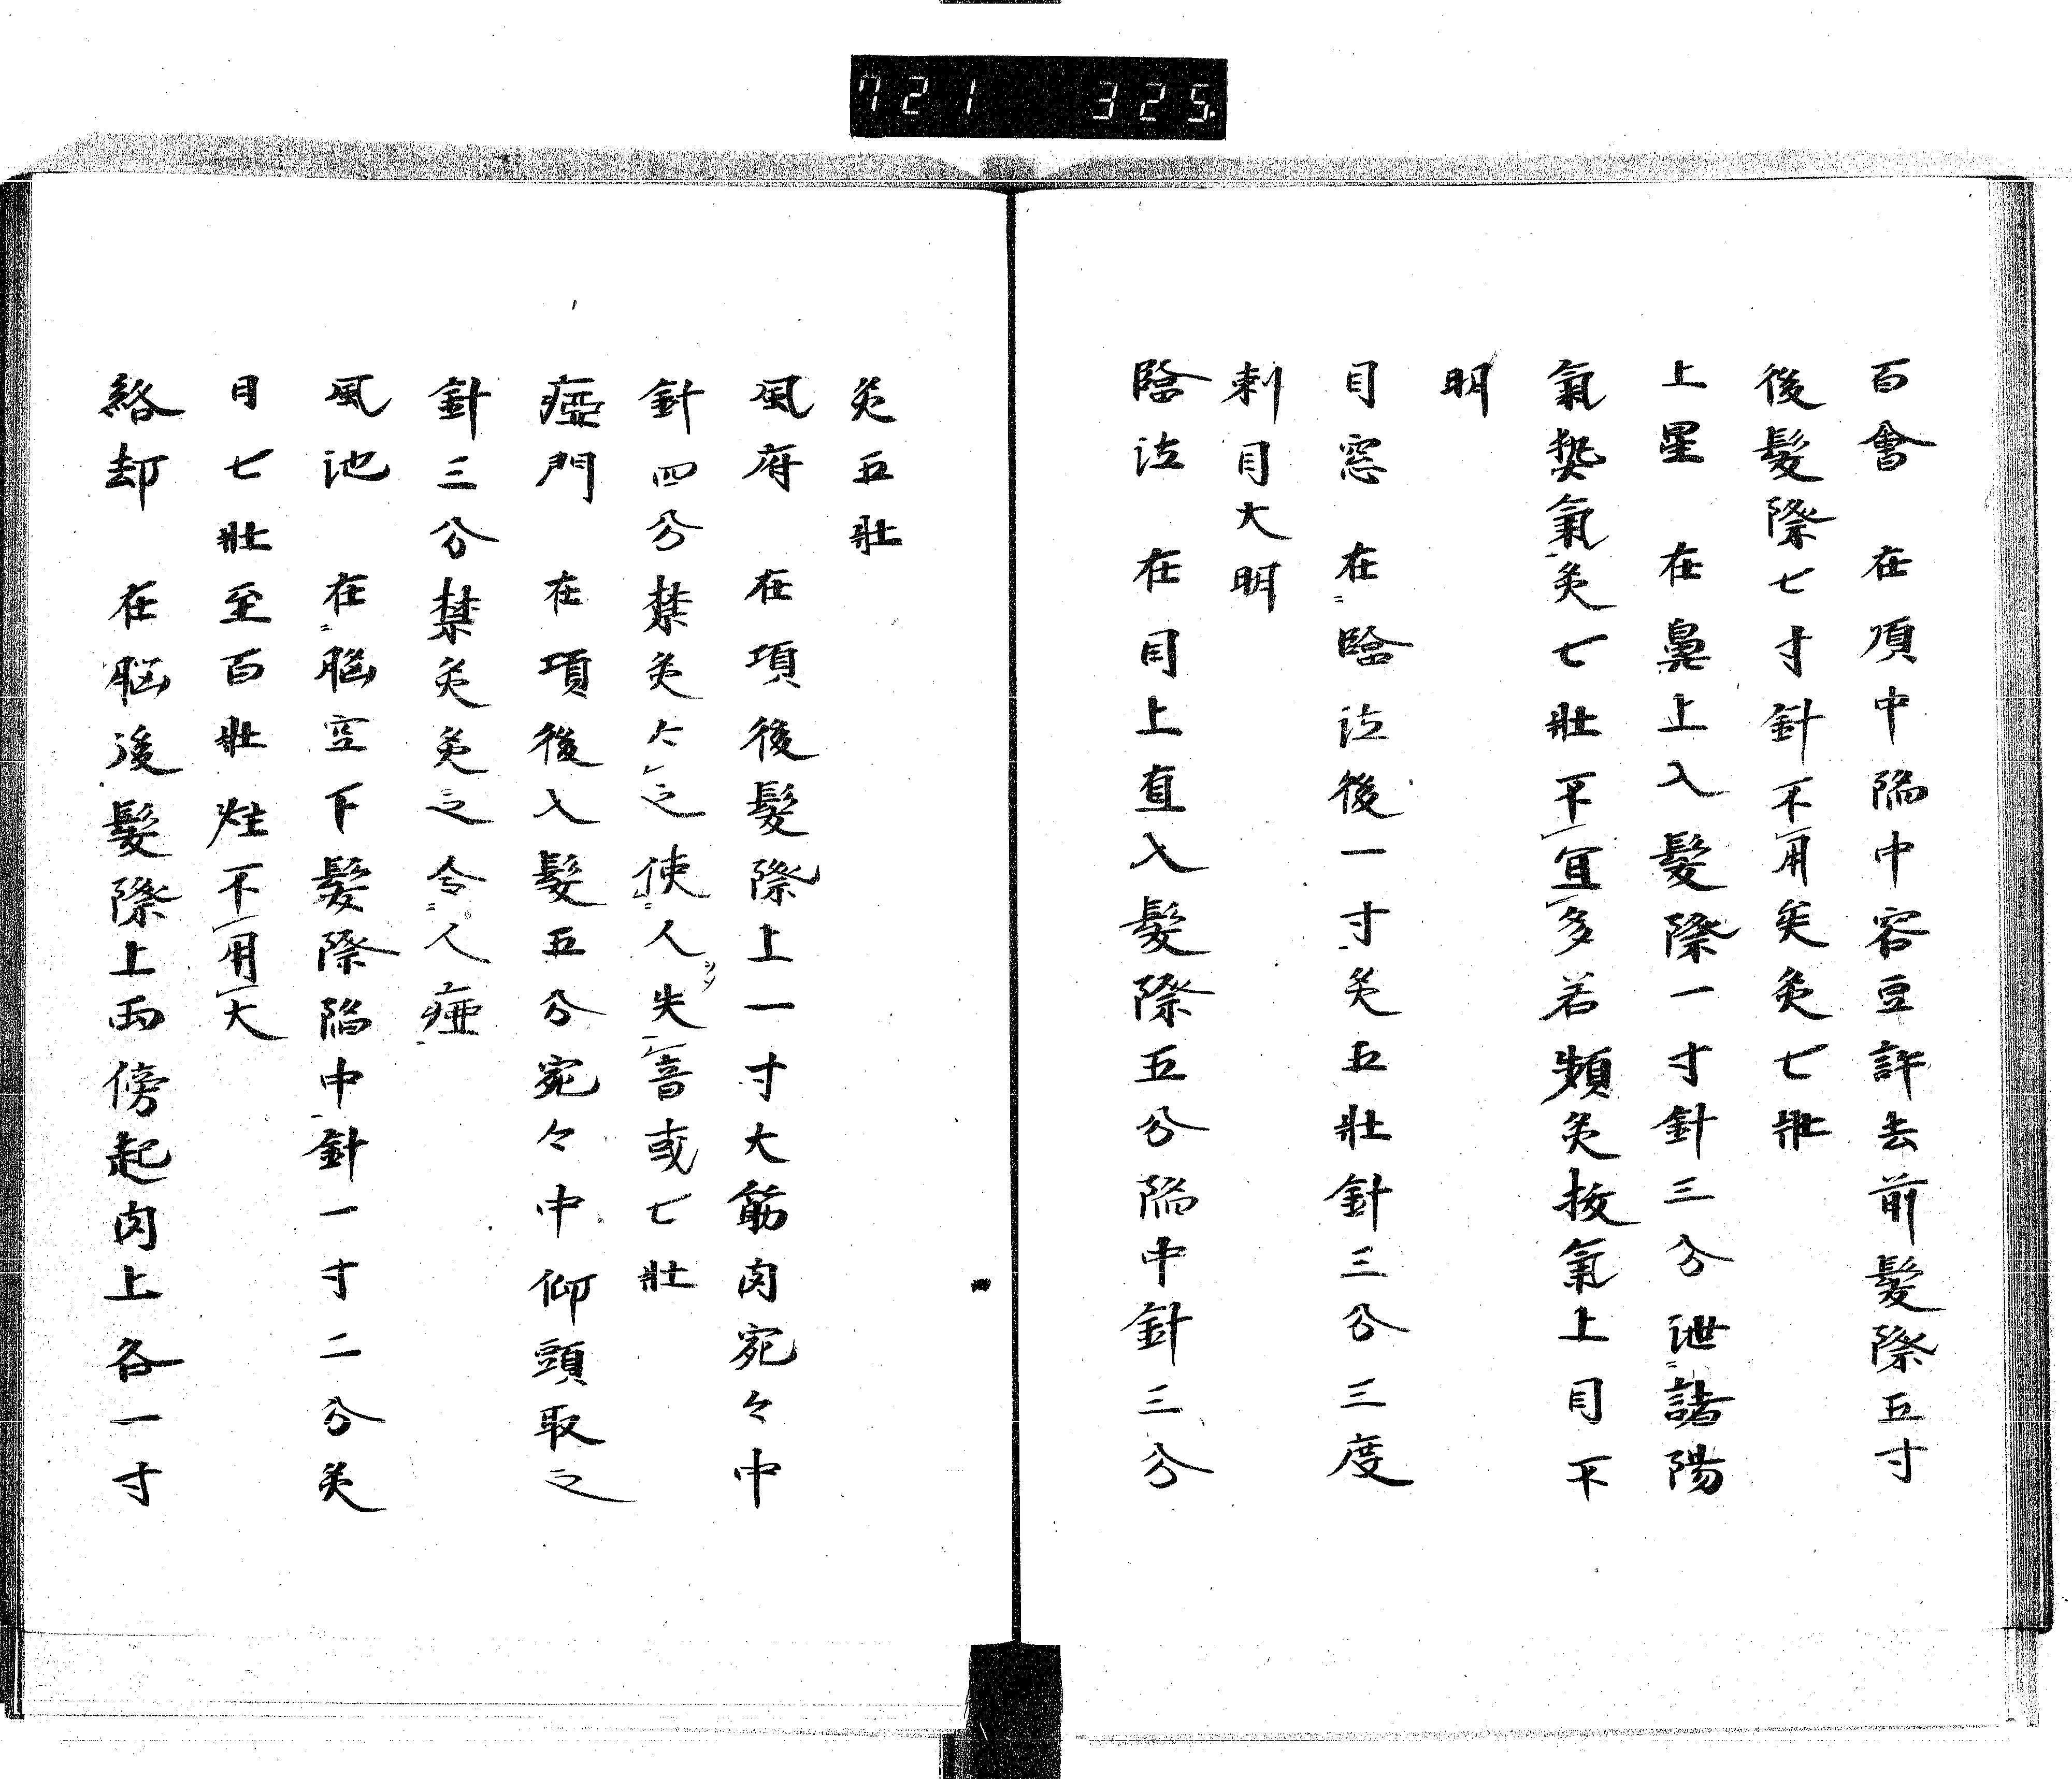 721 325
百會 在頂中陥中容豆許去前髪際五寸
後髪際七寸針不用矣灸七壯
上星 在鼻上入髪際一寸針三分泄諸陽
氣𤍠氣灸七壯不宜多若頻灸拔氣上目不
明
目窓 在臨泣後一寸灸五壯針三分三度
刺目大明
臨泣 在目上直入髪際五分陥中針三分
灸五壯
風府 在項後髪際上一寸大筋肉宛々中
針四分禁灸々之使人失音或七壯
瘂門 在項後入髪五分宛々中仰頭取之
針三分禁灸灸之令人瘂
風池 在脳空下髪際陥中針一寸二分灸
日七壯至百壯炷不用大
絡却 在脳後髪際上両傍起肉上各一寸